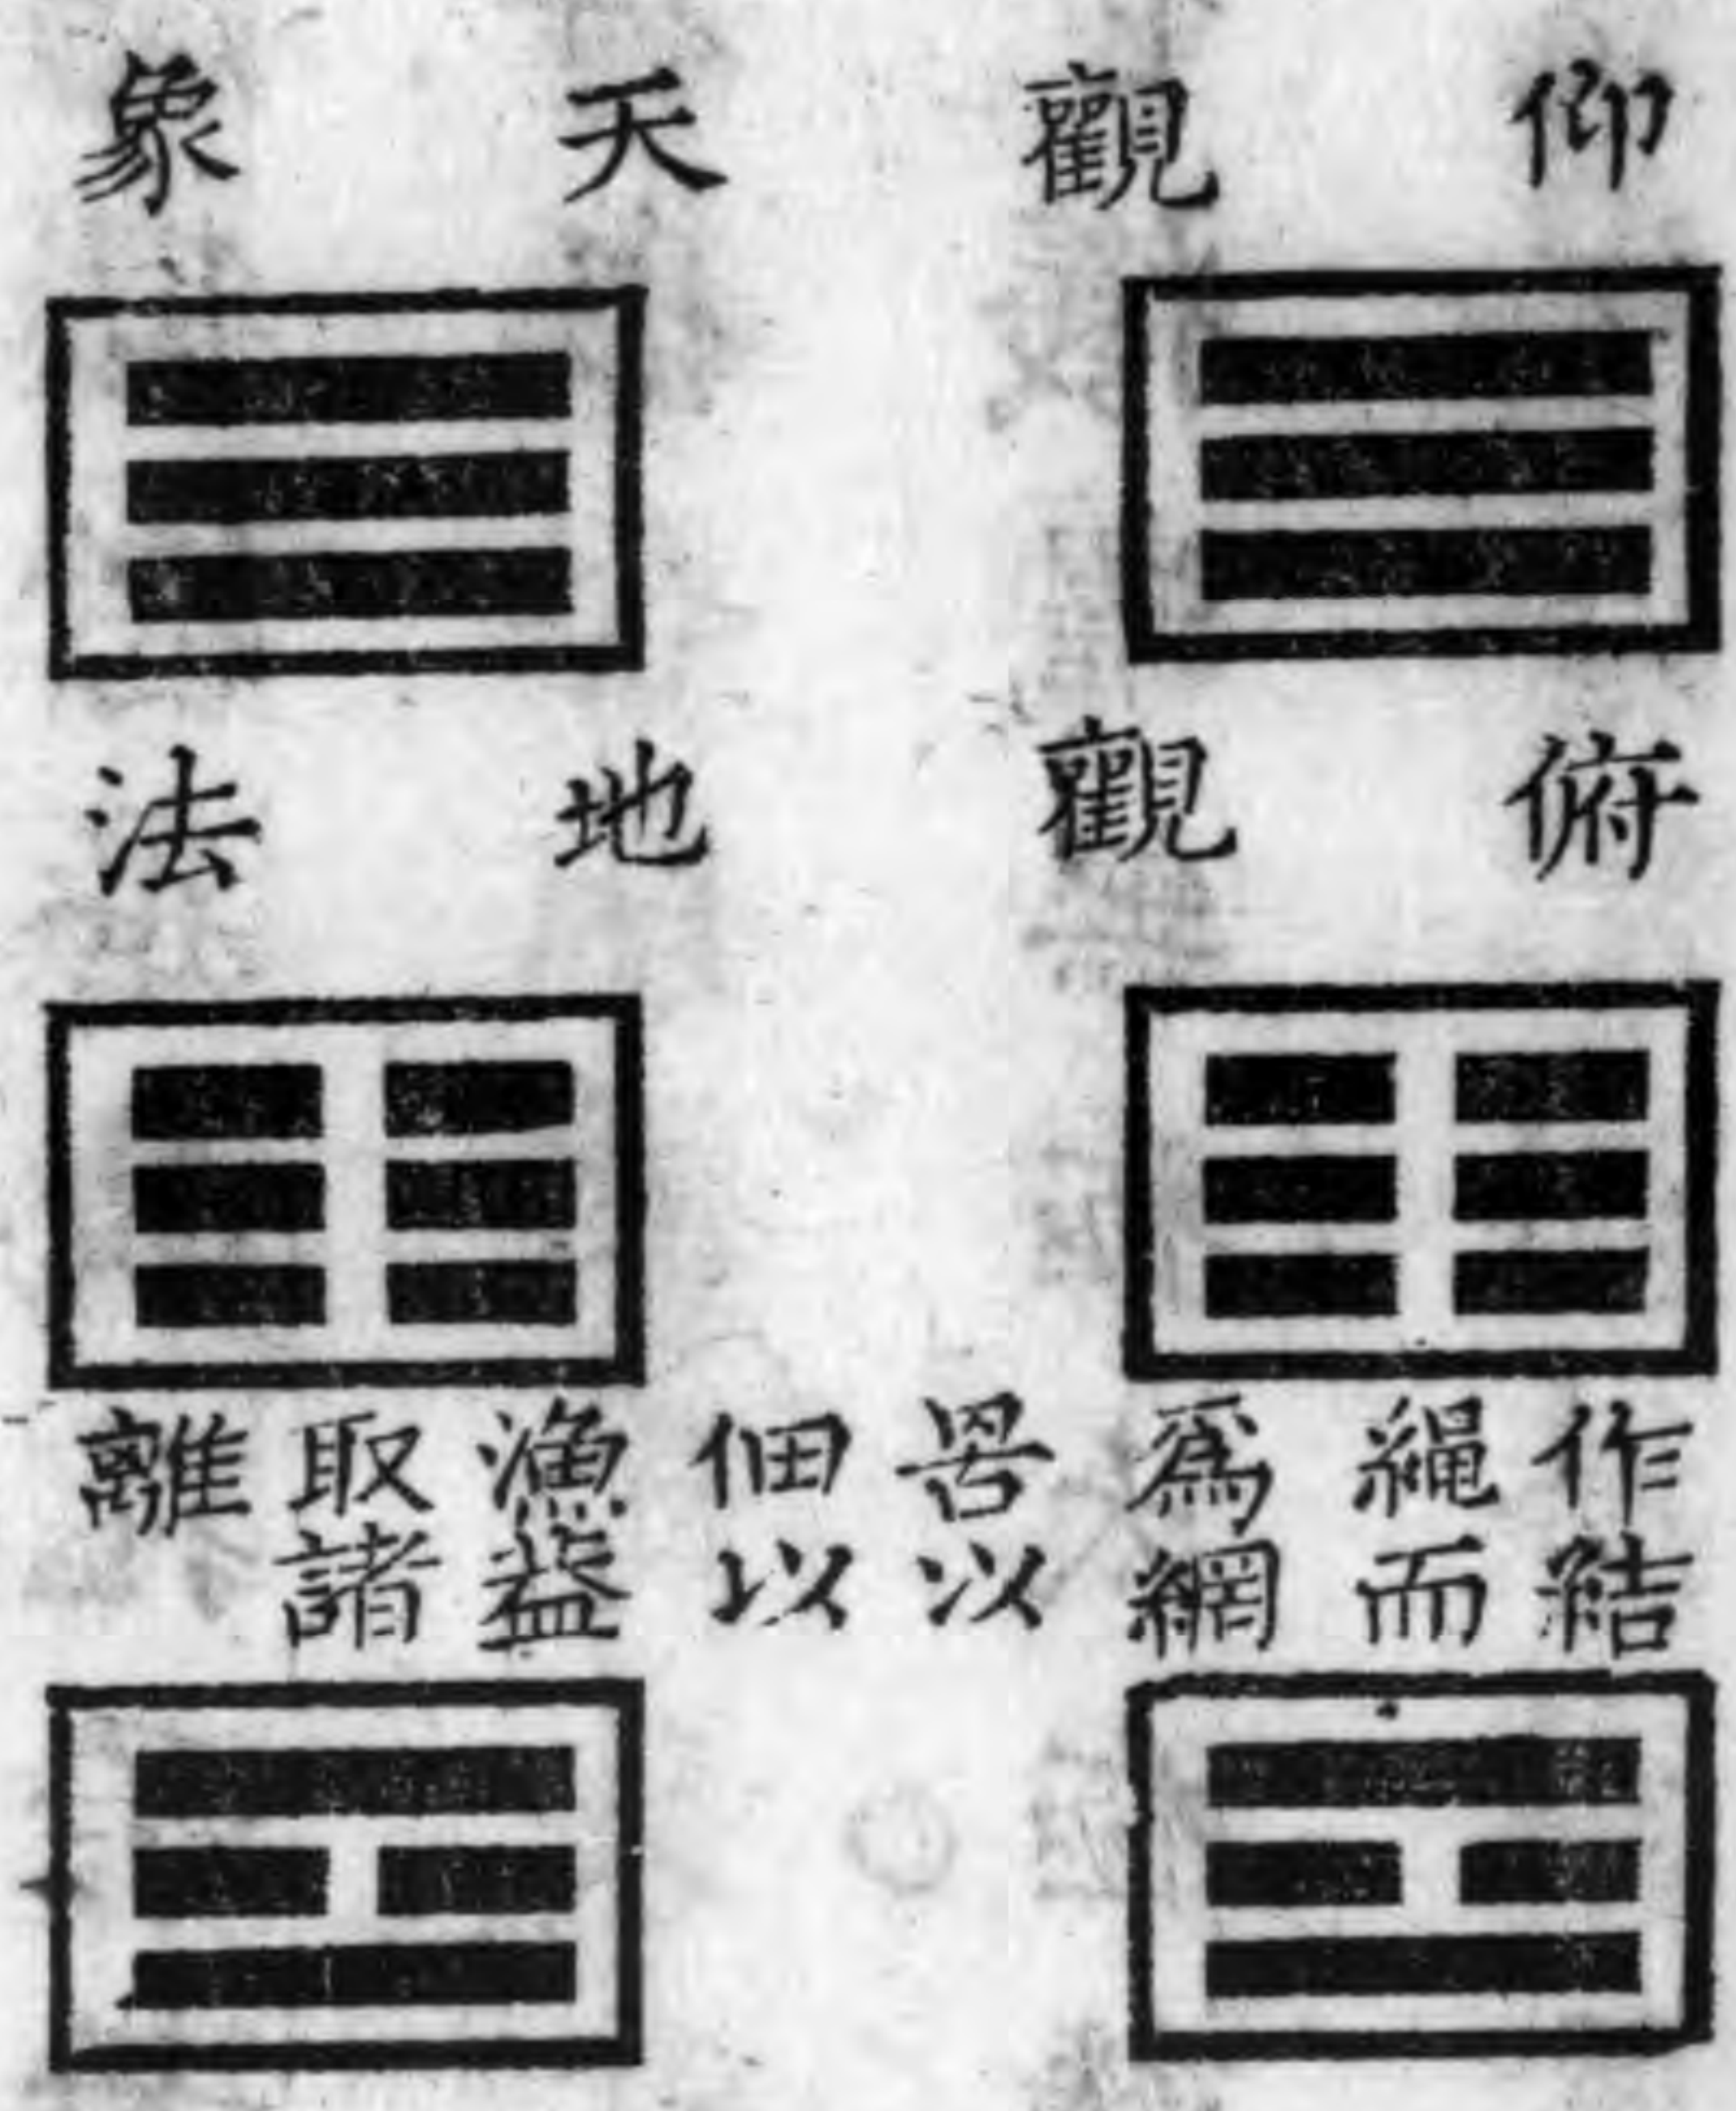 仰觀天象
俯觀地法
作結
繩而
爲網
罟以
佃以
漁葢
取諸
離